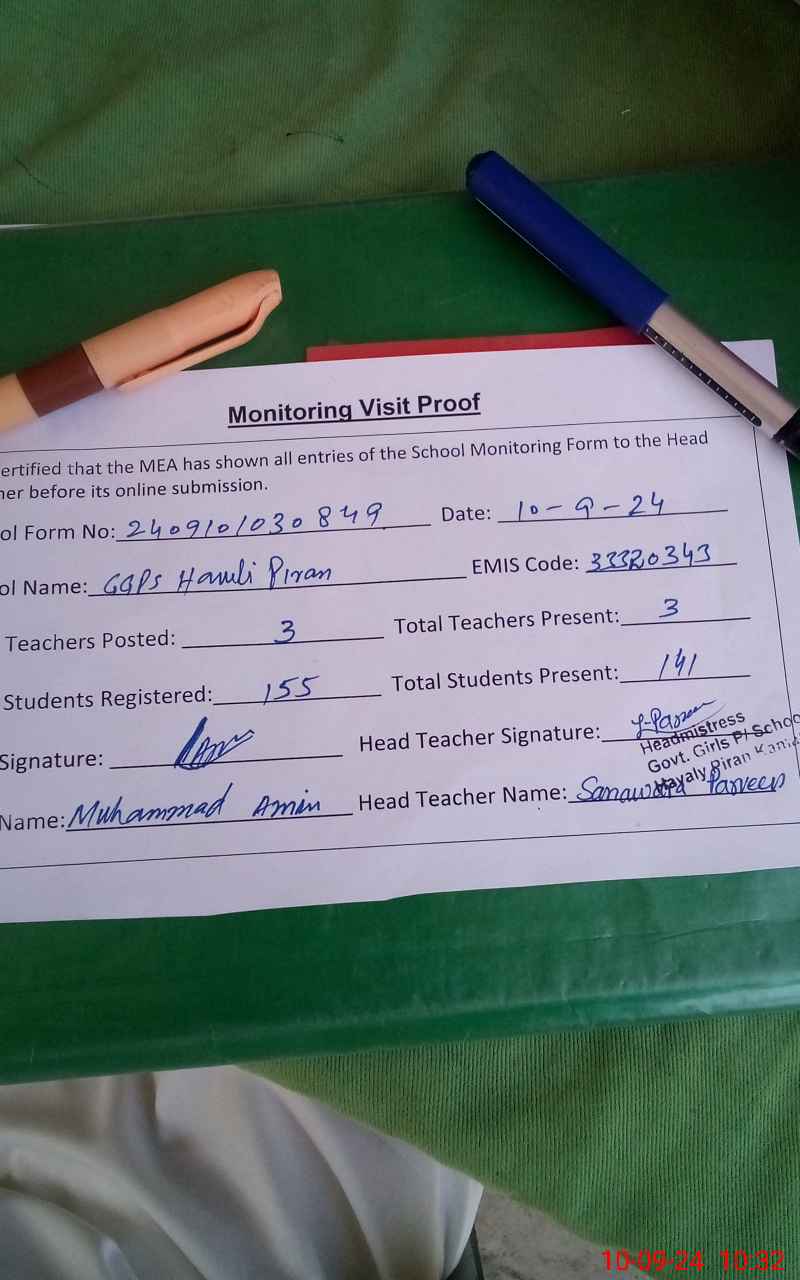 Monitoring Visit Proof
ertified that the MEA has shown all entries of the School Monitoring Form to the Head
her before its online submission.
ol Form No: 2409101030849 Date: 10-9-24
ol Name: GGPS Haveli Piran EMIS Code: 33320343
Teachers Posted: 3 Total Teachers Present: 3
Students Registered: 155 Total Students Present: 141
Signature: Head Teacher Signature:
Headmistress
Govt. Girls P/ School
Piran
Name: Muhammad Amin Head Teacher Name: Parveen
10-09-24 10:32